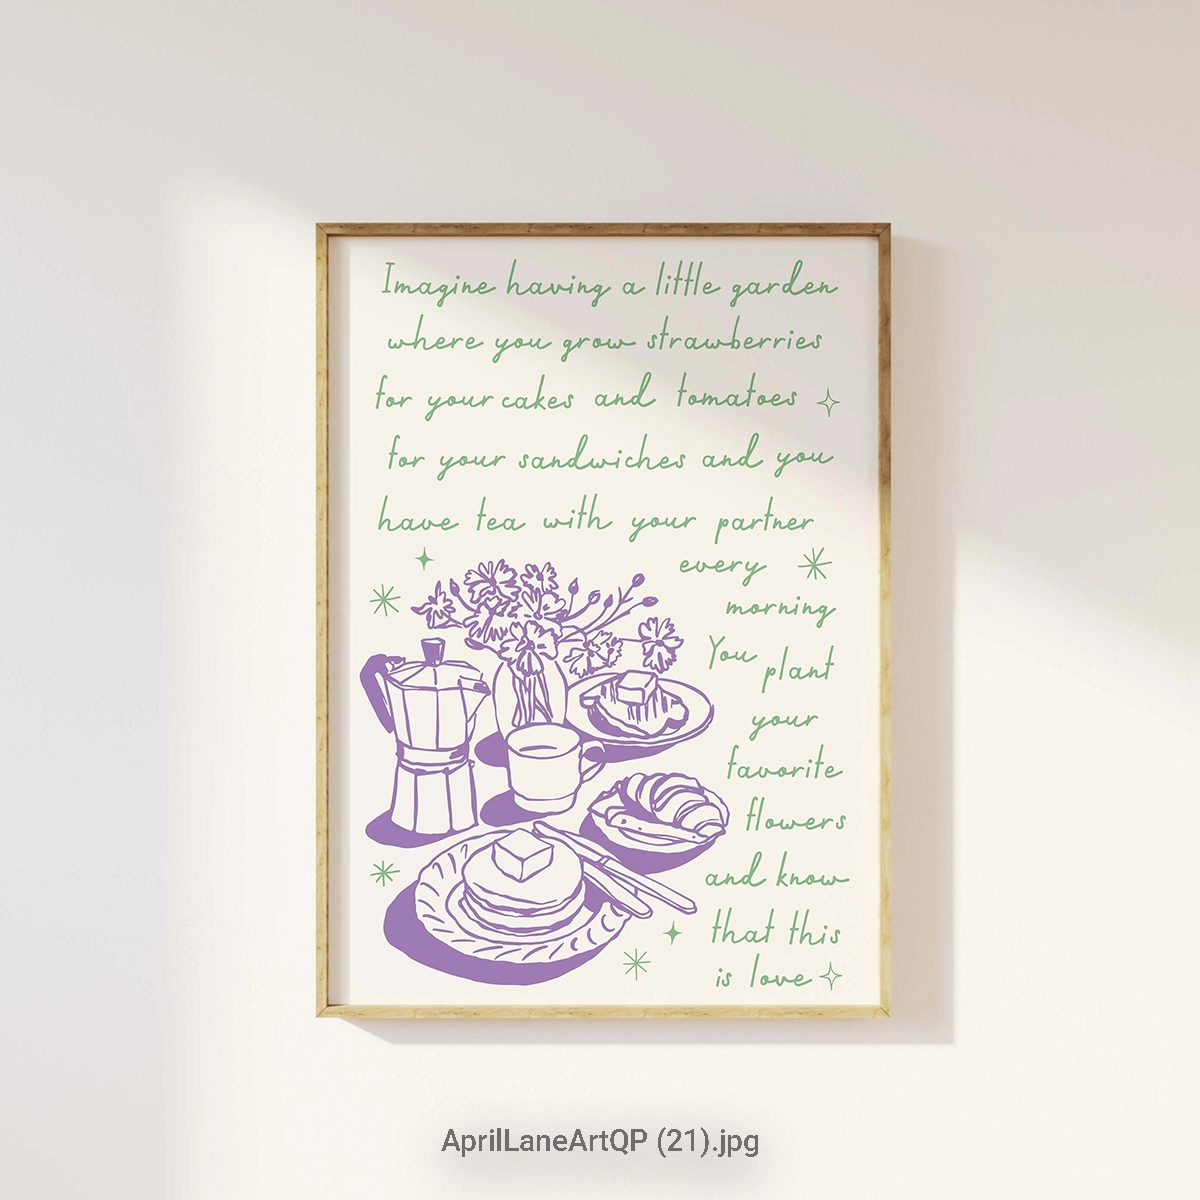 Imagine having a little garden
where you grow strawberries
for your cakes and tomatoes
for your sandwiches and you
have tea with your partner
every
morning
You plant
your
favorite
flowers
and know
that this
is love
AprilLaneArtQP (21).jpg